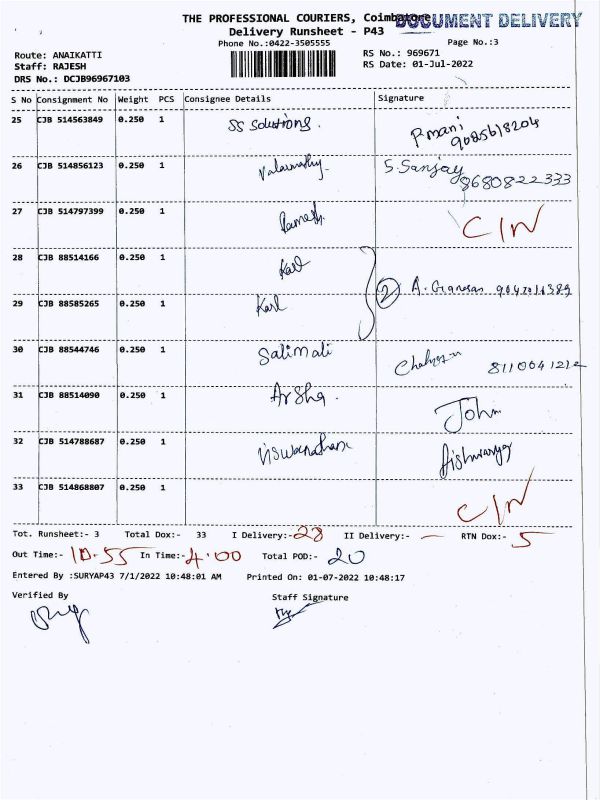 THE PROFESSIONAL COURIERS, Coimbatore
DOCUMENT DELIVERY
Delivery Runsheet - P43
Phone No.:0422-3505555
Page No.:3
Route: ANAIKATTI
RS No.: 969671
Staff: RAJESH
RS Date: 01-Jul-2022
DRS No.: DCJB96967103
S No Consignment No Weight PCS Consignee Details Signature
25 CJB 514563849 0.250 1 SS Solutions. P.mani
9085618204
26 CJB 514856123 0.250 1 S. Sanjay
8680822333
27 CJB 514797399 0.250 1 Ramesh C/N
28 CJB 88514166 0.250 1 Karl
2 A. Ganesan
29 CJB 88585265 0.250 1 Karl
30 CJB 88544746 0.250 1 Salimali 8110041212
31 CJB 88514090 0.250 1 Arsha. John
32 CJB 514788687 0.250 1 Viswanathan Aishwarya
33 CJB 514868807 0.250 1 C/N
Tot. Runsheet:- 3 Total Dox:- 33 I Delivery:- 28 II Delivery:- — RTN Dox:- 5
Out Time:- 10.55 In Time:- 4.00 Total POD:- 20
Entered By :SURYAP43 7/1/2022 10:48:01 AM Printed On: 01-07-2022 10:48:17
Verified By Staff Signature